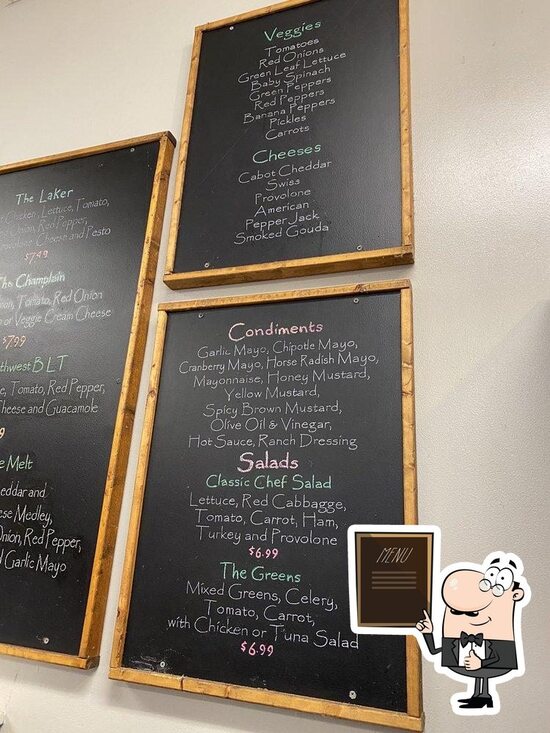 The Laker
Chicken, Lettuce, Tomato,
Red Pepper,
Cheese and Pesto
$7.49
The Champlain
Tomato, Red Onion
or Veggie Cream Cheese
$7.99
BLT
Tomato, Red Pepper,
Cheese and Guacamole
Melt
and
Medley,
Onion, Red Pepper,
Garlic Mayo
Veggies
Tomatoes
Red Onions
Green Leaf Lettuce
Baby Spinach
Green Peppers
Red Peppers
Banana Peppers
Pickles
Carrots
Cheeses
Cabot Cheddar
Swiss
Provolone
American
Pepper Jack
Smoked Gouda
Condiments
Garlic Mayo, Chipotle Mayo,
Cranberry Mayo, Horse Radish Mayo,
Mayonnaise, Honey Mustard,
Yellow Mustard,
Spicy Brown Mustard,
Olive Oil & Vinegar,
Hot Sauce, Ranch Dressing
Salads
Classic Chef Salad
Lettuce, Red Cabbagge,
Tomato, Carrot, Ham,
Turkey and Provolone
$6.99
The Greens
Mixed Greens, Celery,
Tomato, Carrot,
with Chicken or Tuna Salad
$6.99
MENU